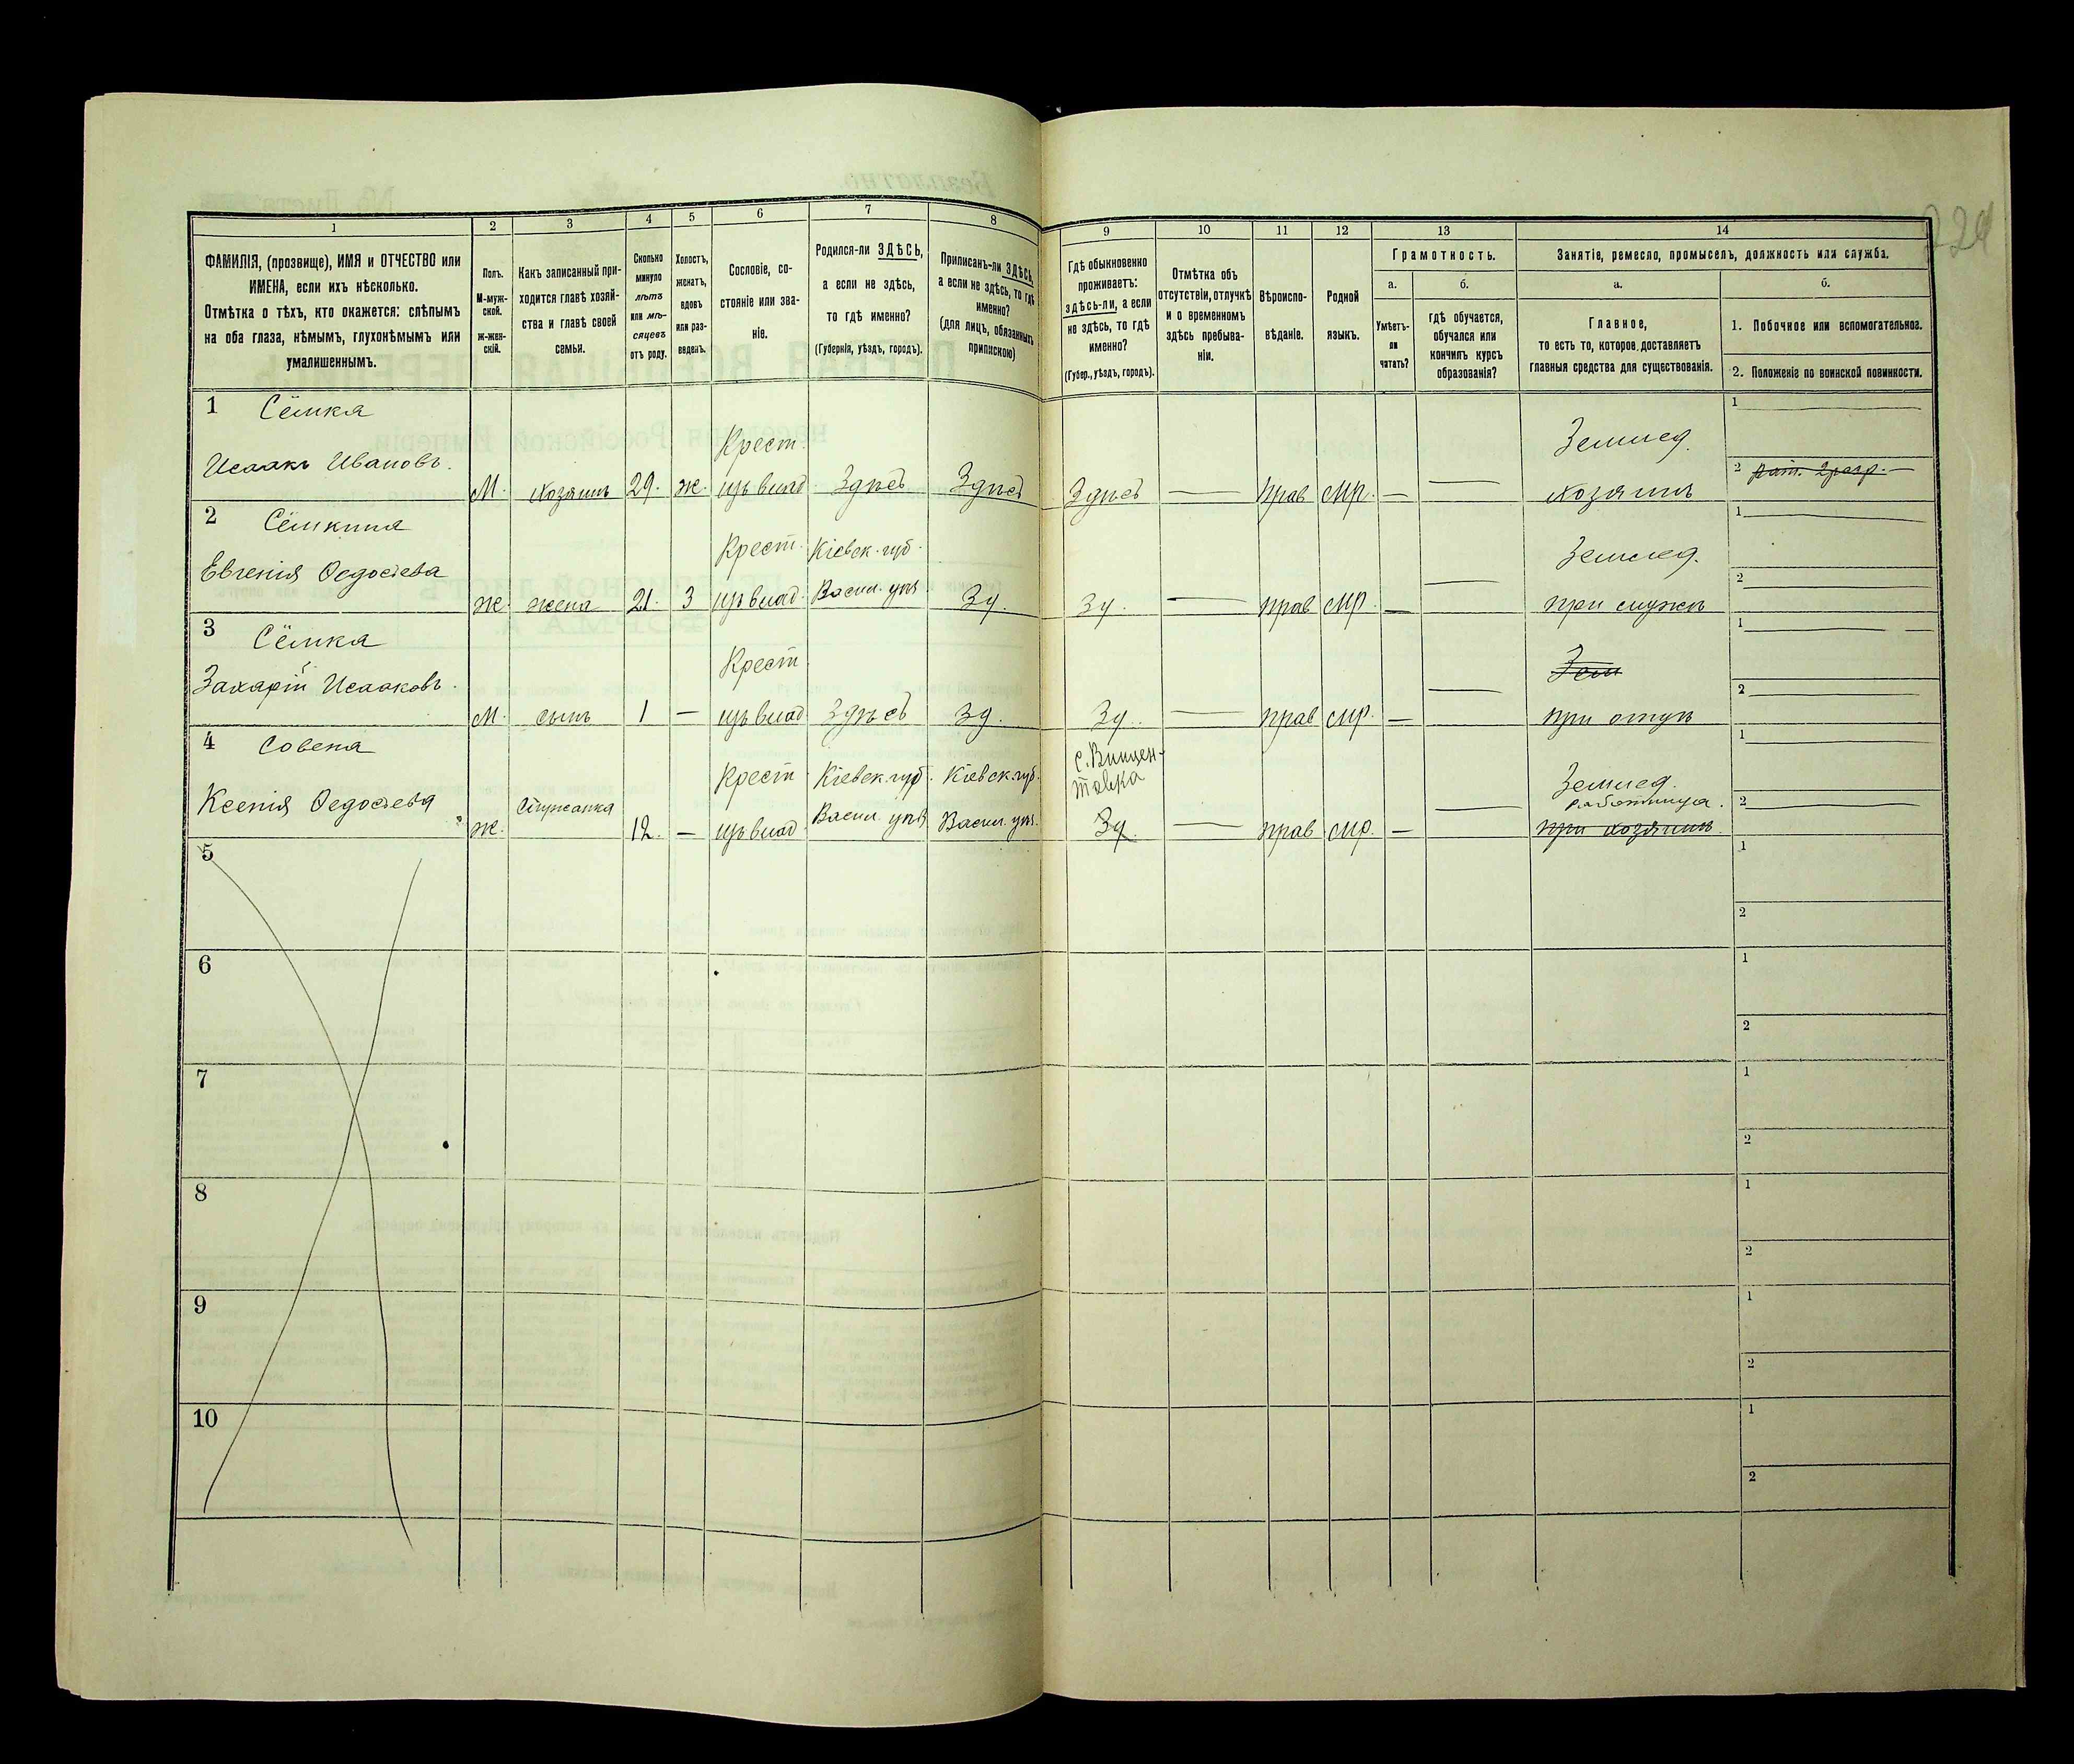 224
1
2
3
4
5
6
7
8
9
10
11
12
13
14
ФАМИЛІЯ, (прозвище), ИМЯ и ОТЧЕСТВО или
ИМЕНА, если ихъ нѣсколько.
Отмѣтка о тѣхъ, кто окажется: слѣпымъ
на оба глаза, нѣмымъ, глухонѣмымъ или
умалишеннымъ.
Полъ.
М-муж-
ской.
ж-жен-
скій.
Какъ записанный при-
ходится главѣ хозяй-
ства и главѣ своей
семьи.
Сколько
минуло
лѣтъ
или мѣ-
сяцевъ
отъ роду.
Холостъ,
женатъ,
вдовъ
или раз-
веденъ.
Сословіе, со-
стояніе или зва-
ніе.
Родился-ли ЗДѢСЬ,
а если не здѣсь,
то гдѣ именно?
(Губернія, уѣздъ, городъ).
Приписанъ-ли ЗДѢСЬ,
а если не здѣсь, то гдѣ
именно?
(для лицъ, обязанныхъ
припискою)
Гдѣ обыкновенно
проживаетъ:
здѣсь-ли, а если
не здѣсь, то гдѣ
именно?
(Губер., уѣздъ, городъ).
Отмѣтка объ
отсутствіи, отлучкѣ
и о временномъ
здѣсь пребыва-
ніи.
Вѣроиспо-
вѣданіе.
Родной
языкъ.
Грамотность.
а.
Умѣетъ-
ли
читать?
б.
гдѣ обучается,
обучался или
кончилъ курсъ
образованія?
Занятіе, ремесло, промыселъ, должность или служба.
а.
Главное,
то есть то, которое доставляетъ
главныя средства для существованія.
б.
1. Побочное или вспомогательное.
2. Положеніе по воинской повинкости.
1 Сёмка
Исаакъ Ивановъ.
М. хозяинъ 29. ж. Крест.
цъ влад Здѣсь Здѣсь Здѣсь — прав мр. — — Землед.
хозяинъ
1 —
2 рат. 2 разр. —
2 Сёмкина
Евгенія Ѳедосіева
ж. жена 21. З Крест.
цъ влад. Кіевск. губ.
Васил. уѣз Зд. Зд. — прав мр. — — Землед.
при мужѣ
1 —
2 —
3 Сёмка
Захарій Исааковъ.
М. сынъ 1 — Крест
цъ влад Здѣсь Зд. Зд. — прав мр. — — Зем
при отцѣ
1 —
2 —
4 Совена
Ксенія Ѳедосіева
ж. Служанка 12. — Крест
цъ влад. Кіевск. губ.
Васил. уѣз Кіевск. губ.
Васил. уѣз. с. Винцен-
товка
Зд — прав мр. — — Землед.
работница.
при хозяинѣ.
1 —
2 —
5
1
2
6
1
2
7
1
2
8
1
2
9
1
2
10
1
2